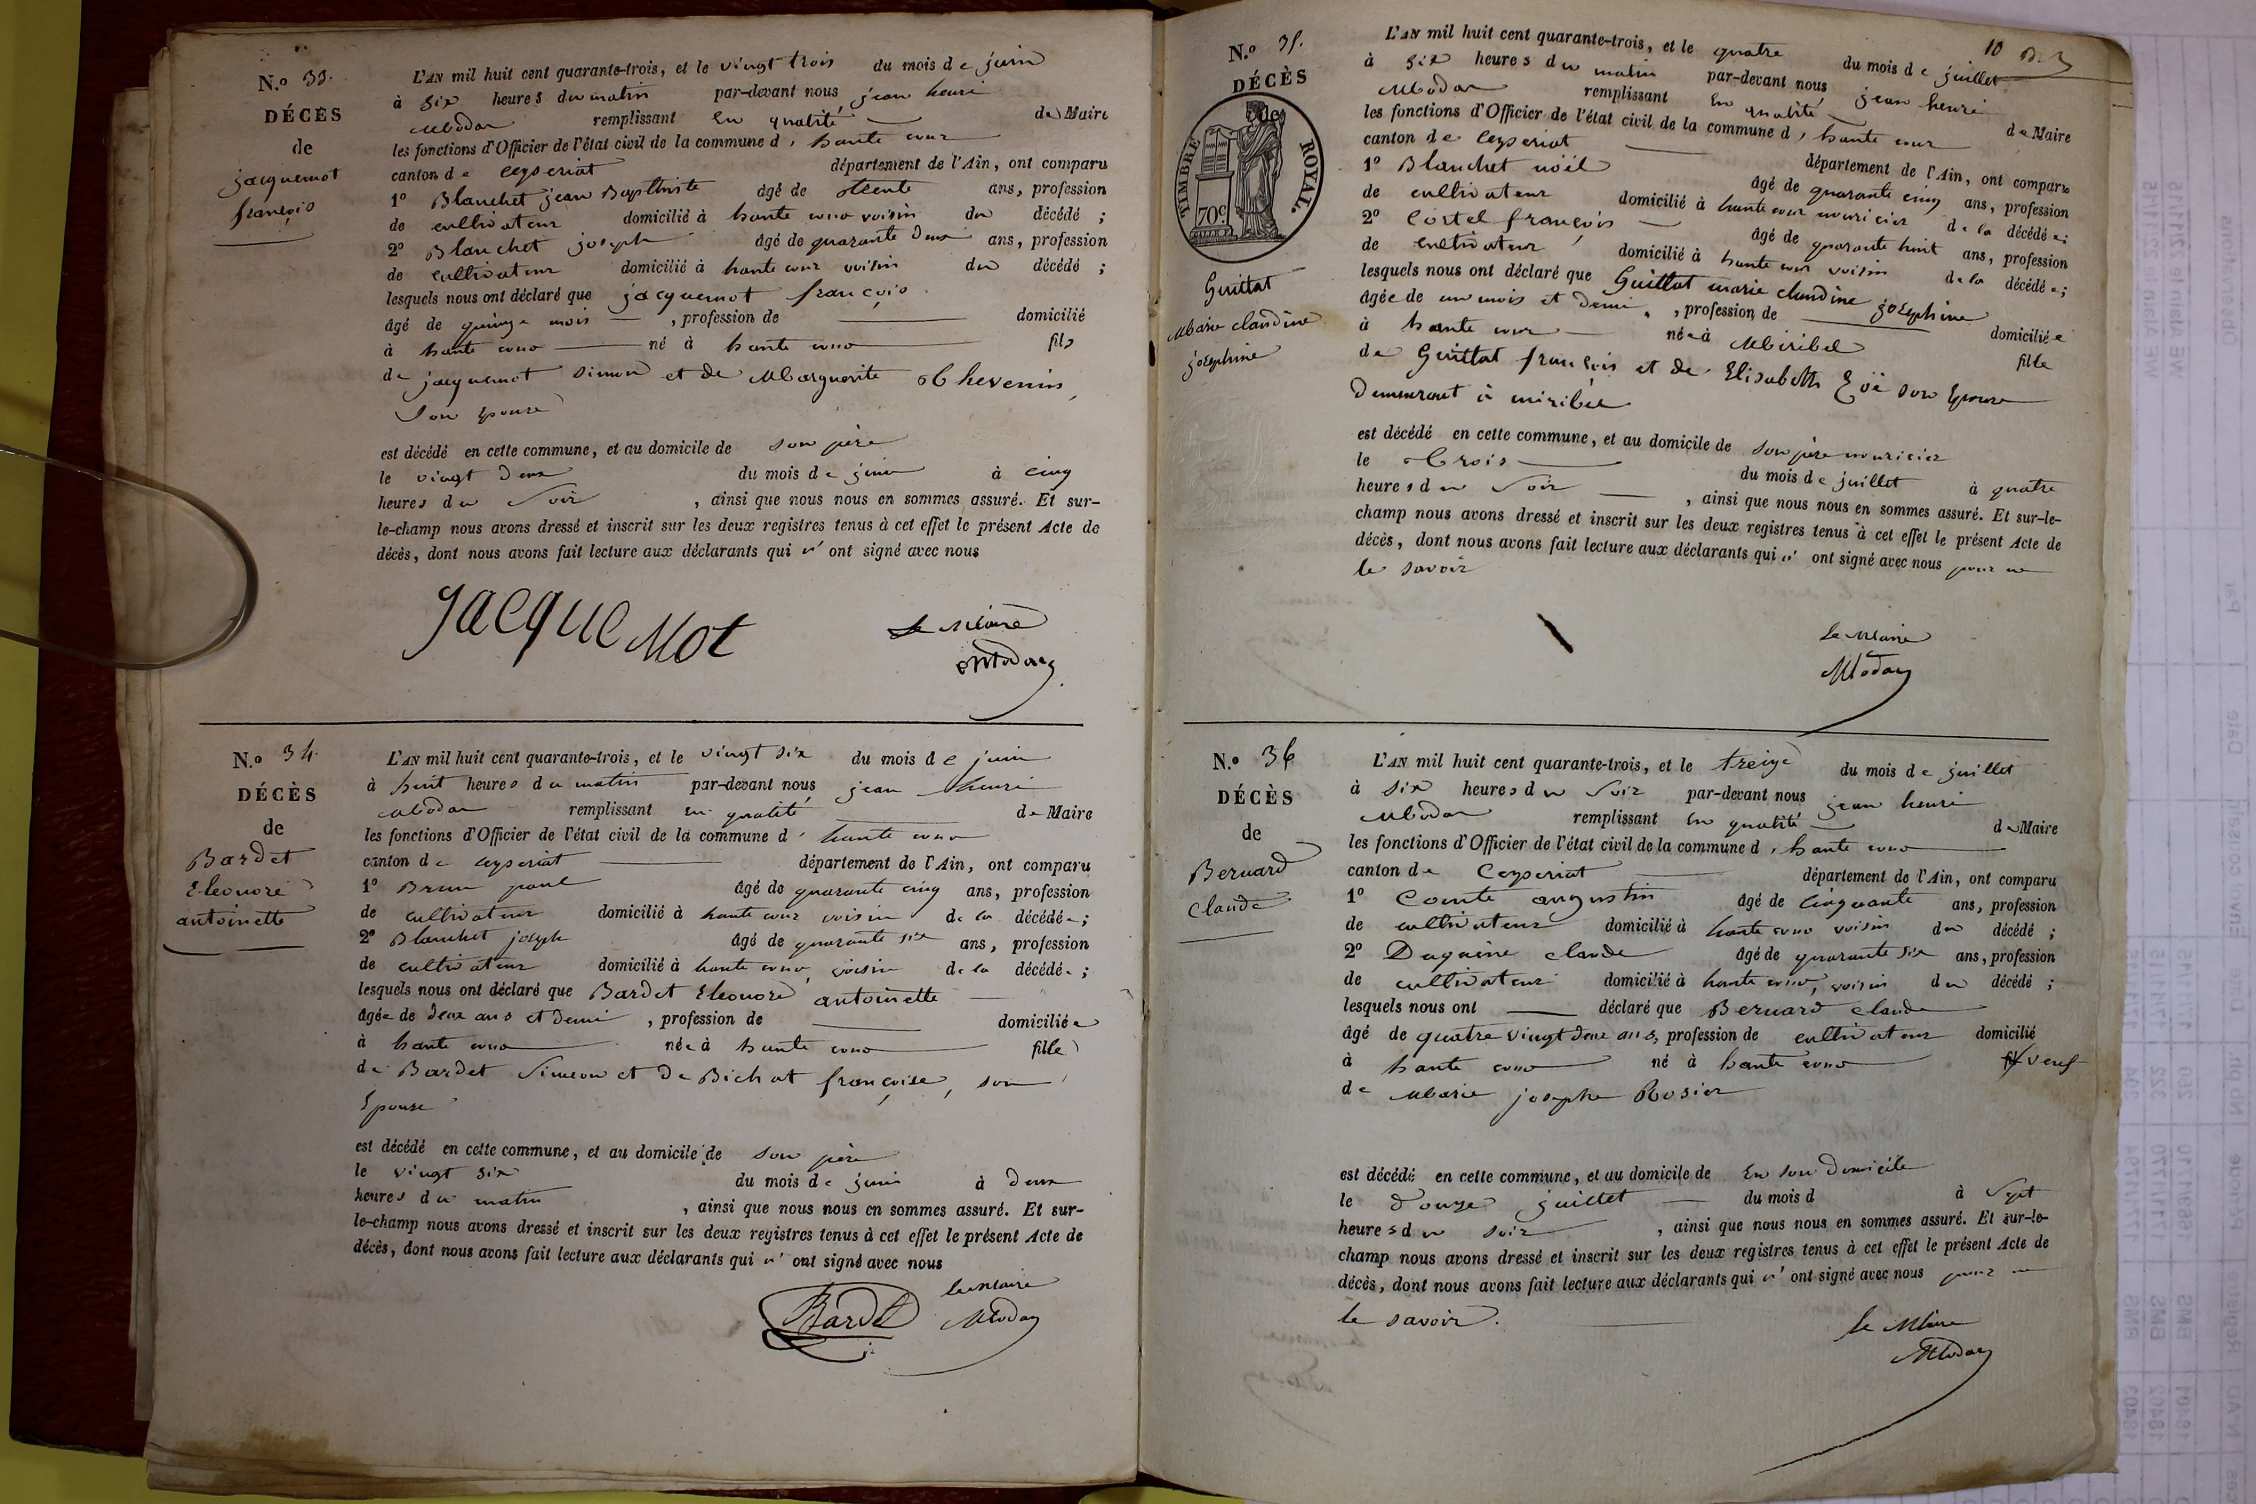 N.o 33.
DÉCÈS
de
jacquemot
françois
L'AN mil huit cent quarante-trois, et le vingt trois du mois de juin
à six heures du matin par-devant nous jean henri
Modas remplissant en qualité de Maire
les fonctions d'Officier de l'état civil de la commune d' haute cour
canton de Ceyseriat département de l'Ain, ont comparu
1o Blanchet jean Baptiste âgé de trente ans, profession
de cultivateur domicilié à haute cour voisin du décédé ;
2o Blanchet joseph âgé de quarante deux ans, profession
de cultivateur domicilié à haute cour voisin du décédé ;
lesquels nous ont déclaré que jacquemot françois
âgé de quinze mois , profession de domicilié
à haute cour né à haute cour fils
de jacquemot Simon et de Marguerite Thevenin,
son épouse
est décédé en cette commune, et au domicile de son père
le vingt deux du mois de juin à cinq
heures du soir , ainsi que nous nous en sommes assuré. Et sur-
le-champ nous avons dressé et inscrit sur les deux registres tenus à cet effet le présent Acte de
décès, dont nous avons fait lecture aux déclarants qui n' ont signé avec nous
jacque Mot
Le Maire
Modas
N.o 34.
DÉCÈS
de
Bardet
Eleonore
antoinette
L'AN mil huit cent quarante-trois, et le vingt six du mois de juin
à huit heures du matin par-devant nous jean henri
Modas remplissant en qualité de Maire
les fonctions d'Officier de l'état civil de la commune d' haute cour
canton de Ceyseriat département de l'Ain, ont comparu
1o Brun paul âgé de quarante cinq ans, profession
de cultivateur domicilié à haute cour voisin de la décédée ;
2o Blanchet joseph âgé de quarante six ans, profession
de cultivateur domicilié à haute cour, voisin de la décédée ;
lesquels nous ont déclaré que Bardet Eleonore antoinette
âgée de deux ans et demi , profession de domiciliée
à haute cour née à haute cour fille
de Bardet Simeon et de Bichat françoise, son
épouse
est décédé en cette commune, et au domicile de son père
le vingt six du mois de juin à deux
heures du matin , ainsi que nous nous en sommes assuré. Et sur-
le-champ nous avons dressé et inscrit sur les deux registres tenus à cet effet le présent Acte de
décès, dont nous avons fait lecture aux déclarants qui n' ont signé avec nous
Bardet
le Maire
Modas
10
N.o 35.
DÉCÈS
de
TIMBRE ROYAL.
70c.
Guillat
Marie claudine
josephine
L'AN mil huit cent quarante-trois, et le quatre du mois de juillet
à six heures du matin par-devant nous jean henri
Modas remplissant en qualité de Maire
les fonctions d'Officier de l'état civil de la commune d' haute cour
canton de Ceyseriat département de l'Ain, ont comparu
1o Blanchet noël âgé de quarante cinq ans, profession
de cultivateur domicilié à haute cour nouricier de la décédée ;
2o Cortel françois âgé de quarante huit ans, profession
de cultivateur domicilié à haute cour voisin de la décédée ;
lesquels nous ont déclaré que Guillat marie claudine josephine
âgée de un mois et demi , profession de domiciliée
à haute cour née à Miribel fille
de Guillat françois et de Elisabeth Zoé son épouse
demeurant à miribel
est décédé en cette commune, et au domicile de son père nouricier
le trois du mois de juillet à quatre
heures du soir , ainsi que nous nous en sommes assuré. Et sur-le-
champ nous avons dressé et inscrit sur les deux registres tenus à cet effet le présent Acte de
décès, dont nous avons fait lecture aux déclarants qui n' ont signé avec nous pour ne
le savoir
le Maire
Modas
N.o 36
DÉCÈS
de
Bernard
Claude
L'AN mil huit cent quarante-trois, et le treize du mois de juillet
à six heures du soir par-devant nous jean henri
Modas remplissant en qualité de Maire
les fonctions d'Officier de l'état civil de la commune d' haute cour
canton de Ceyseriat département de l'Ain, ont comparu
1o Comte augustin âgé de cinquante ans, profession
de cultivateur domicilié à haute cour voisin du décédé ;
2o claude âgé de quarante six ans, profession
de cultivateur domicilié à haute cour, voisin du décédé ;
lesquels nous ont déclaré que Bernard claude
âgé de quatre vingt deux ans, profession de cultivateur domicilié
à haute cour né à haute cour veuf
de Marie josephe Rosier
est décédé en cette commune, et au domicile de En son Domicile
le Douze juillet du mois d à Sept
heures du soir , ainsi que nous nous en sommes assuré. Et sur-le-
champ nous avons dressé et inscrit sur les deux registres tenus à cet effet le présent Acte de
décès, dont nous avons fait lecture aux déclarants qui n' ont signé avec nous pour ne
le savoir.
le Maire
Modas